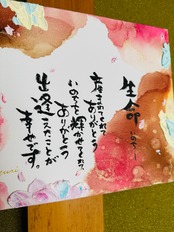 生命
いのち
産まれてくれて
ありがとう
いのちを輝かせてくれて
ありがとう
出逢えたことが
幸せです。